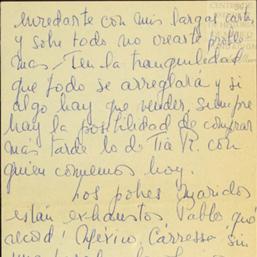 enredarte con mis largas cartas
y sobre todo no crearte proble
mas. Ten la tranquilidad
que todo se arreglará y si
algo hay que vender, siempre
hay la posibilidad de comprar
más tarde lo de Tía R. con
quien comemos hoy.
Los pobres maridos
están exhaustos Pablo qué
México, Carressa sin